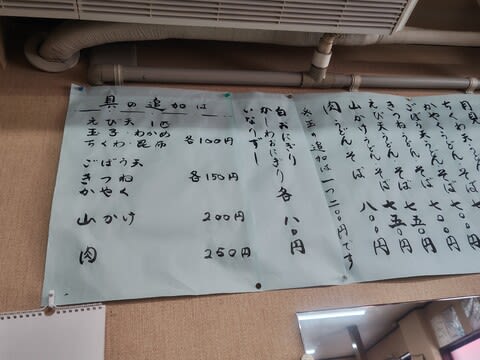 月見うどん
ちくわ天うどん そば 七〇〇円
かやくうどん そば 七〇〇円
ごぼう天うどん そば
きつねうどん そば
えび天うどん そば
山かけうどん そば 八〇〇円
肉うどん そば
玉の追加は一つ二〇〇円です
白おにぎり
かしわおにぎり 各 八〇円
いなりずし
具の追加は
えび天 1匹
玉子・わかめ
ちくわ・昆布 各100円
ごぼう天
きつね 各150円
かやく
山かけ 200円
肉 250円